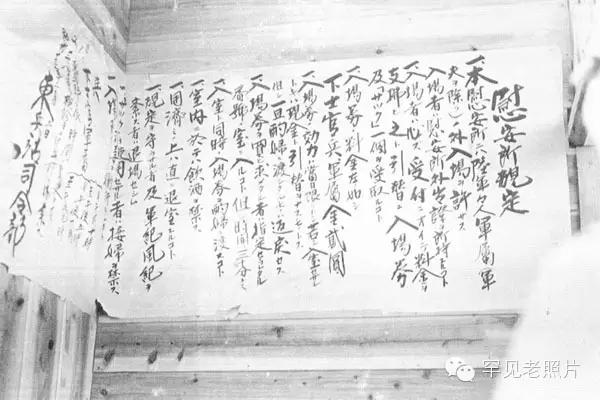 慰安所規定
一、本慰安所ニハ陸軍々人軍属(軍
夫ヲ除ク)ノ外入場ヲ許サス
入場者ハ慰安所外出証ヲ所持スルコト
一、入場者ハ必ス受付ニオイテ料金ヲ
支払ヒ之ト引替ニ入場券
及「サック」一個ヲ受取ルコト
一、入場券ノ料金左ノ如シ
下士官、兵、軍属 金貳圓
一、入場券ノ効力ハ當日限リトシ若シ入室セサル
トキハ現金ト引替ヲナスモノトス
但シ一旦酌婦ニ渡シタルモノハ返戻セス
一、入場券ヲ買ヒ求メタル者ハ指定セラレタル
番號ノ室ニ入ルコト但シ時間ハ三十分トス
一、入室ト同時ニ入場券ヲ酌婦ニ渡スコト
一、室内ニ於テハ飲酒ヲ禁ス
一、用済ミノ上ハ直ニ退室スルコト
一、規定ヲ守ラサル者及軍紀風紀ヲ
紊ス者ハ退場セシム
一、サックヲ使用セサル者ハ接婦ヲ禁ス
東兵站司令部
罕见老照片